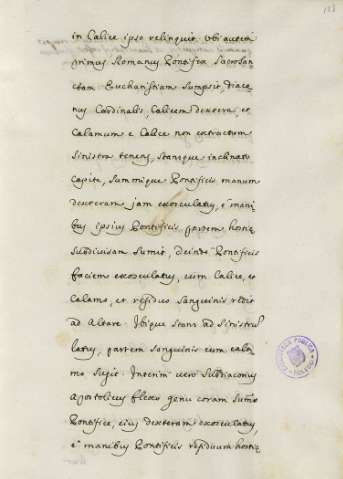 in Calice ipso relinquit. Ubi autem
nimus Romanus Pontifex Sacrosan
ctam Eucharistiam Sumpsit, diaco
nus Cardinalis, Calicem dextera, et
Calamum e Calice non extractum
sinistra tenens, stansque inclinato
capite, summique Pontificis manum
dexteram jam exosculatus, e mani
bus ipsius Pontificis partem hostiæ
subdivisam sumit, deinde Pontificis
faciem exosculatus, cum Calice, et
Calamo, et residuo sanguinis redit
ad Altare. Ibique stans ad sinistrũ
latus, partem sanguinis cum cala
mo sugit. Interim vero Subdiaconus
Apostolicus flexo genu coram Sumo
Pontifice, eius dexteram exosculatus
e manibus Pontificis residuum hostiæ